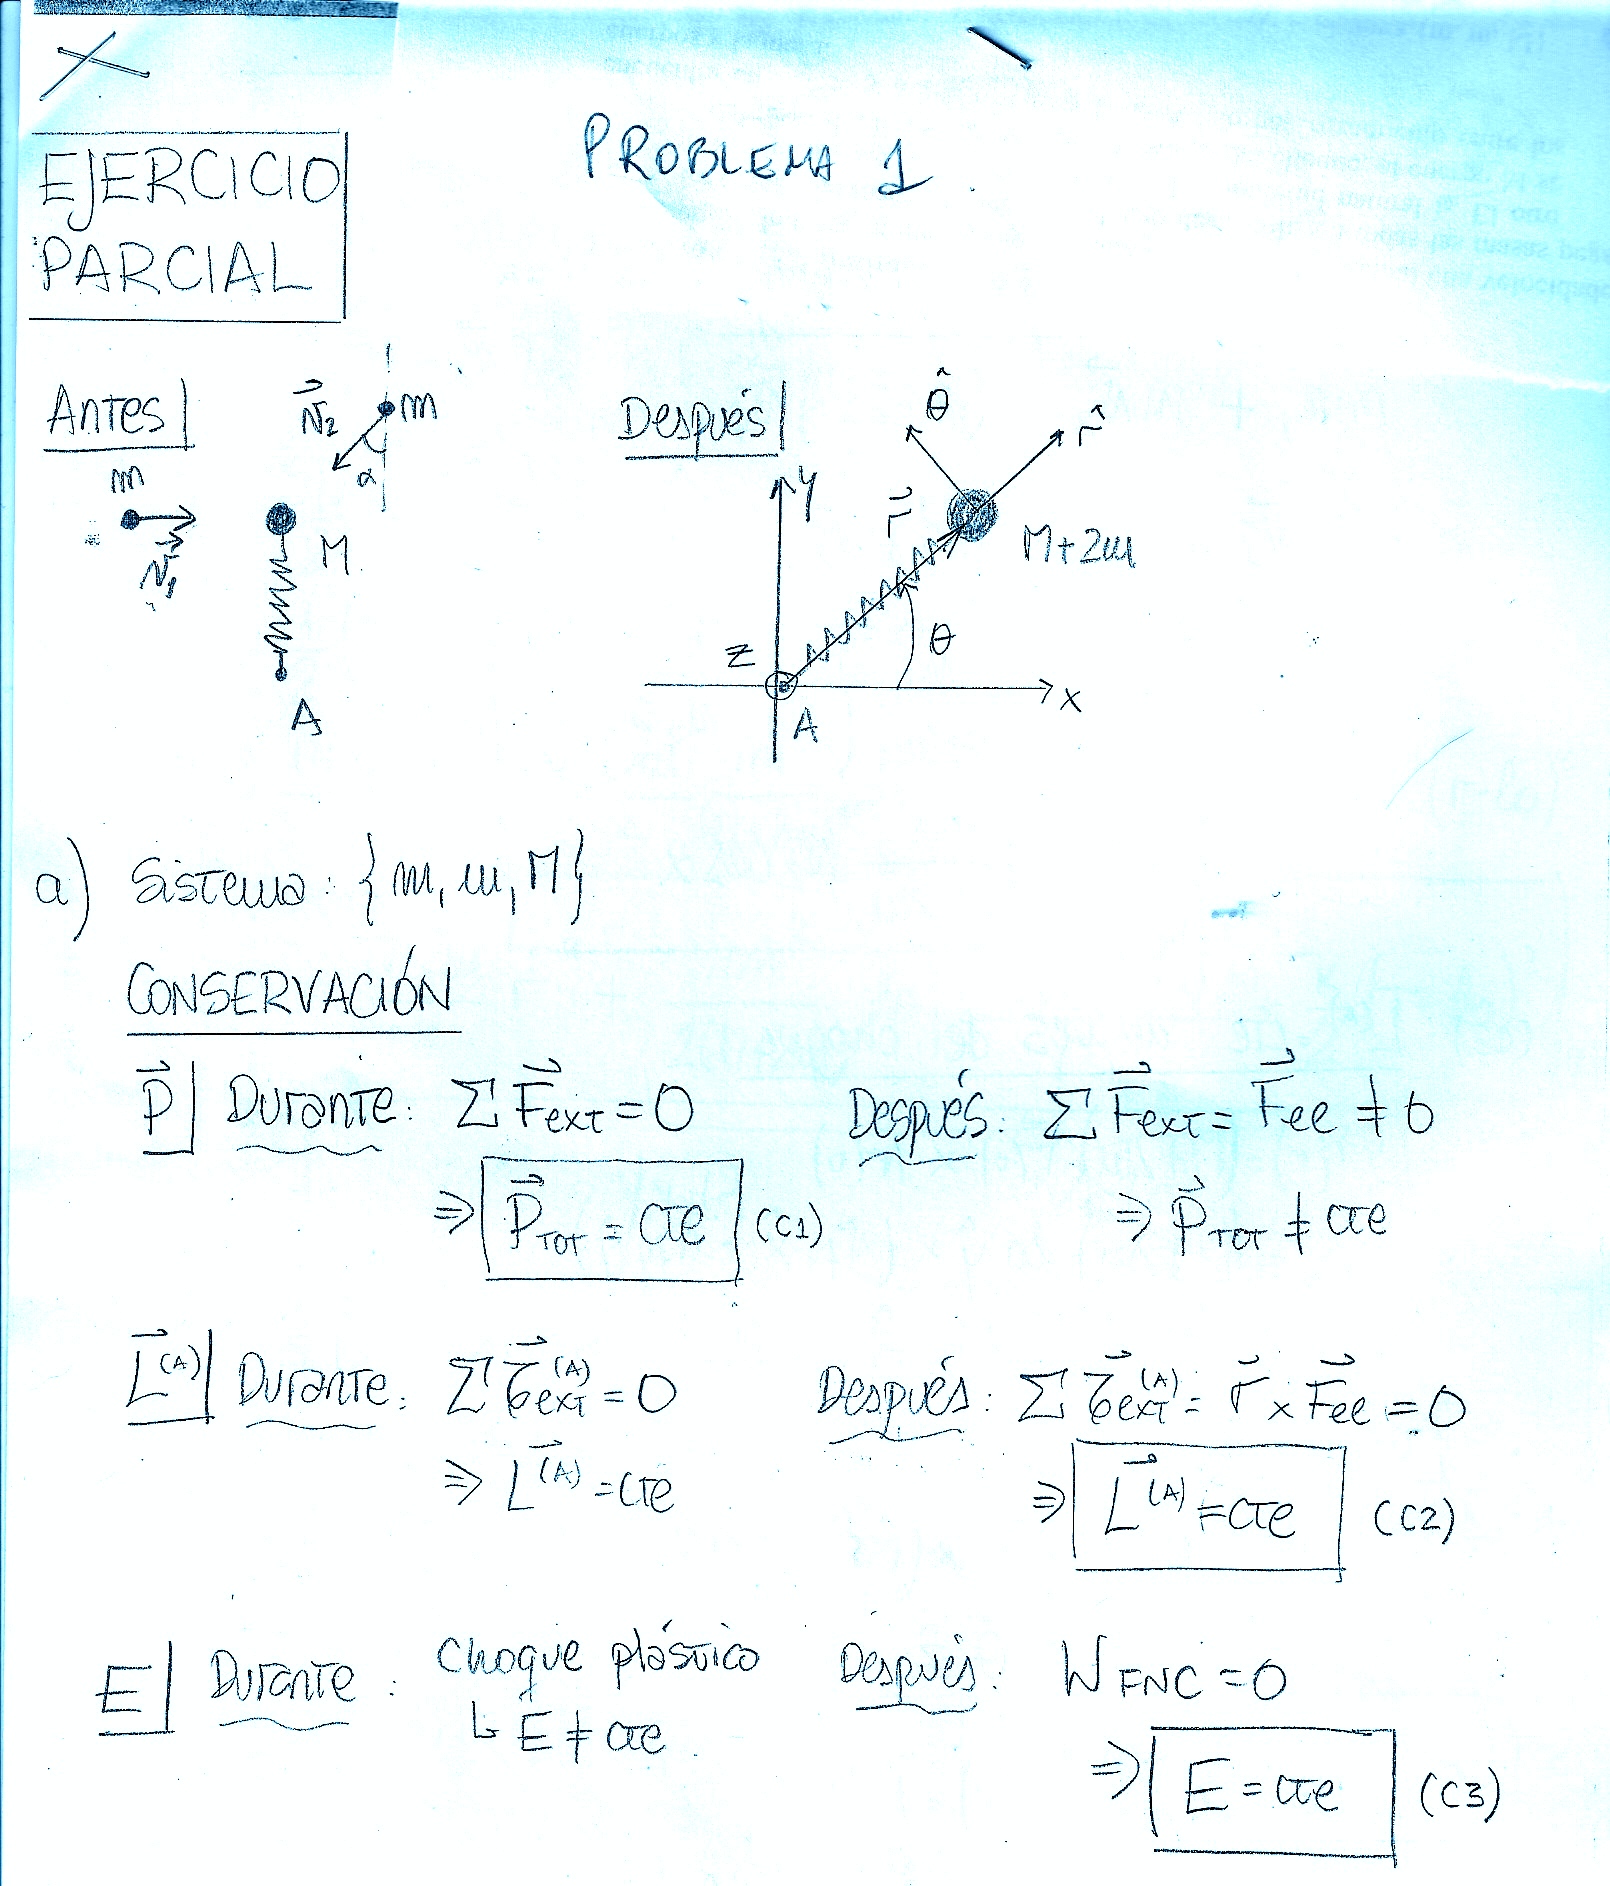 EJERCICIO
PARCIAL
PROBLEMA 1.
Antes
m
v⃗₁
M
A
v⃗₂
m
α
Después
y
x
z
A
r⃗
θ
θ̂
r̂
M+2m
a) Sistema: {m, m, M}
CONSERVACIÓN
P⃗ | Durante: Σ F⃗ext = 0 Después: Σ F⃗ext = F⃗ee ≠ 0
⇒ P⃗TOT = cte (C1) ⇒ P⃗TOT ≠ cte
L⃗^(A) | Durante: Σ τ⃗ext^(A) = 0 Después: Σ τ⃗ext^(A) = r⃗ × F⃗ee = 0
⇒ L⃗^(A) = cte ⇒ L⃗^(A) = cte (C2)
E | Durante: Choque plástico Después: W FNC = 0
↳ E ≠ cte ⇒ E = cte (C3)